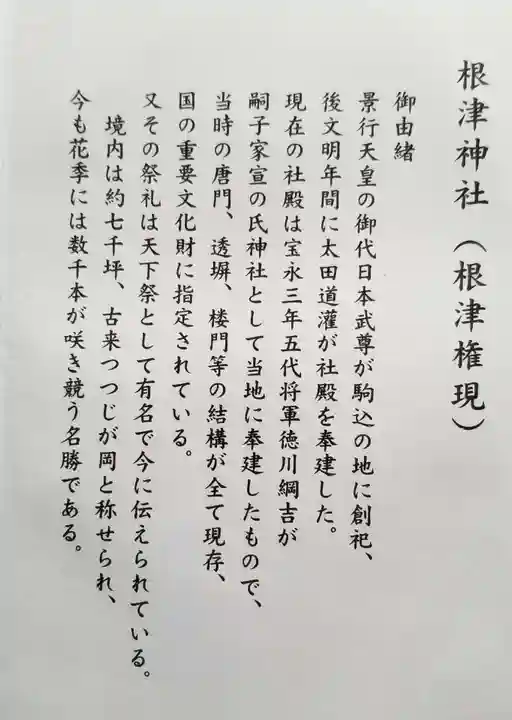 根津神社（根津権現）
御由緒
景行天皇の御代日本武尊が駒込の地に創祀、
後文明年間に太田道灌が社殿を奉建した。
現在の社殿は宝永三年五代将軍徳川綱吉が
嗣子家宣の氏神社として当地に奉建したもので、
当時の唐門、透塀、楼門等の結構が全て現存、
国の重要文化財に指定されている。
又その祭礼は天下祭として有名で今に伝えられている。
境内は約七千坪、古来つつじが岡と称せられ、
今も花季には数千本が咲き競う名勝である。